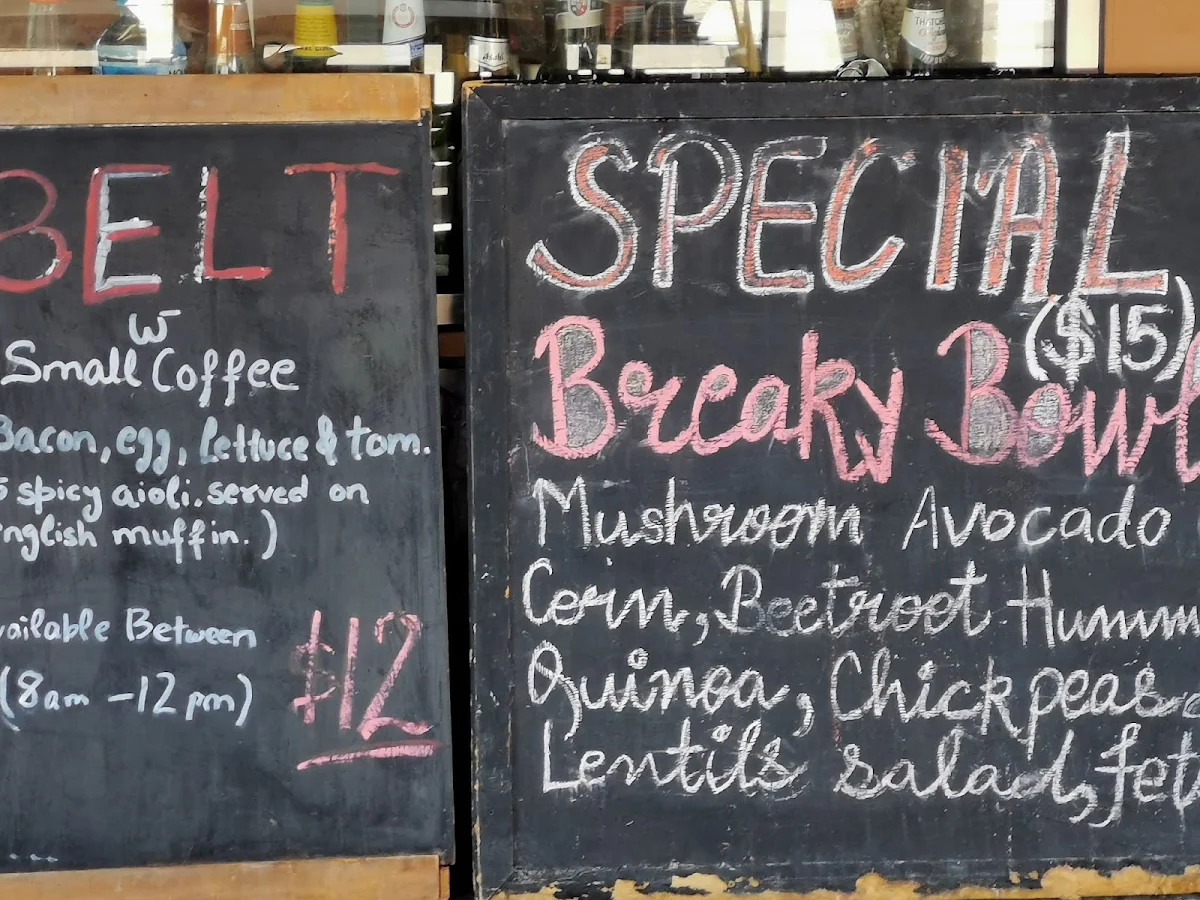 BELT
w
Small Coffee
Bacon, egg, lettuce & tom.
spicy aioli. served on
nglish muffin.)
vailable Between
(8am - 12 pm)
$12
SPECIAL
($15)
Breaky Bowl
Mushroom Avocado
Corn, Beetroot Humm
Quinoa, Chickpeas &
Lentils salad, fet